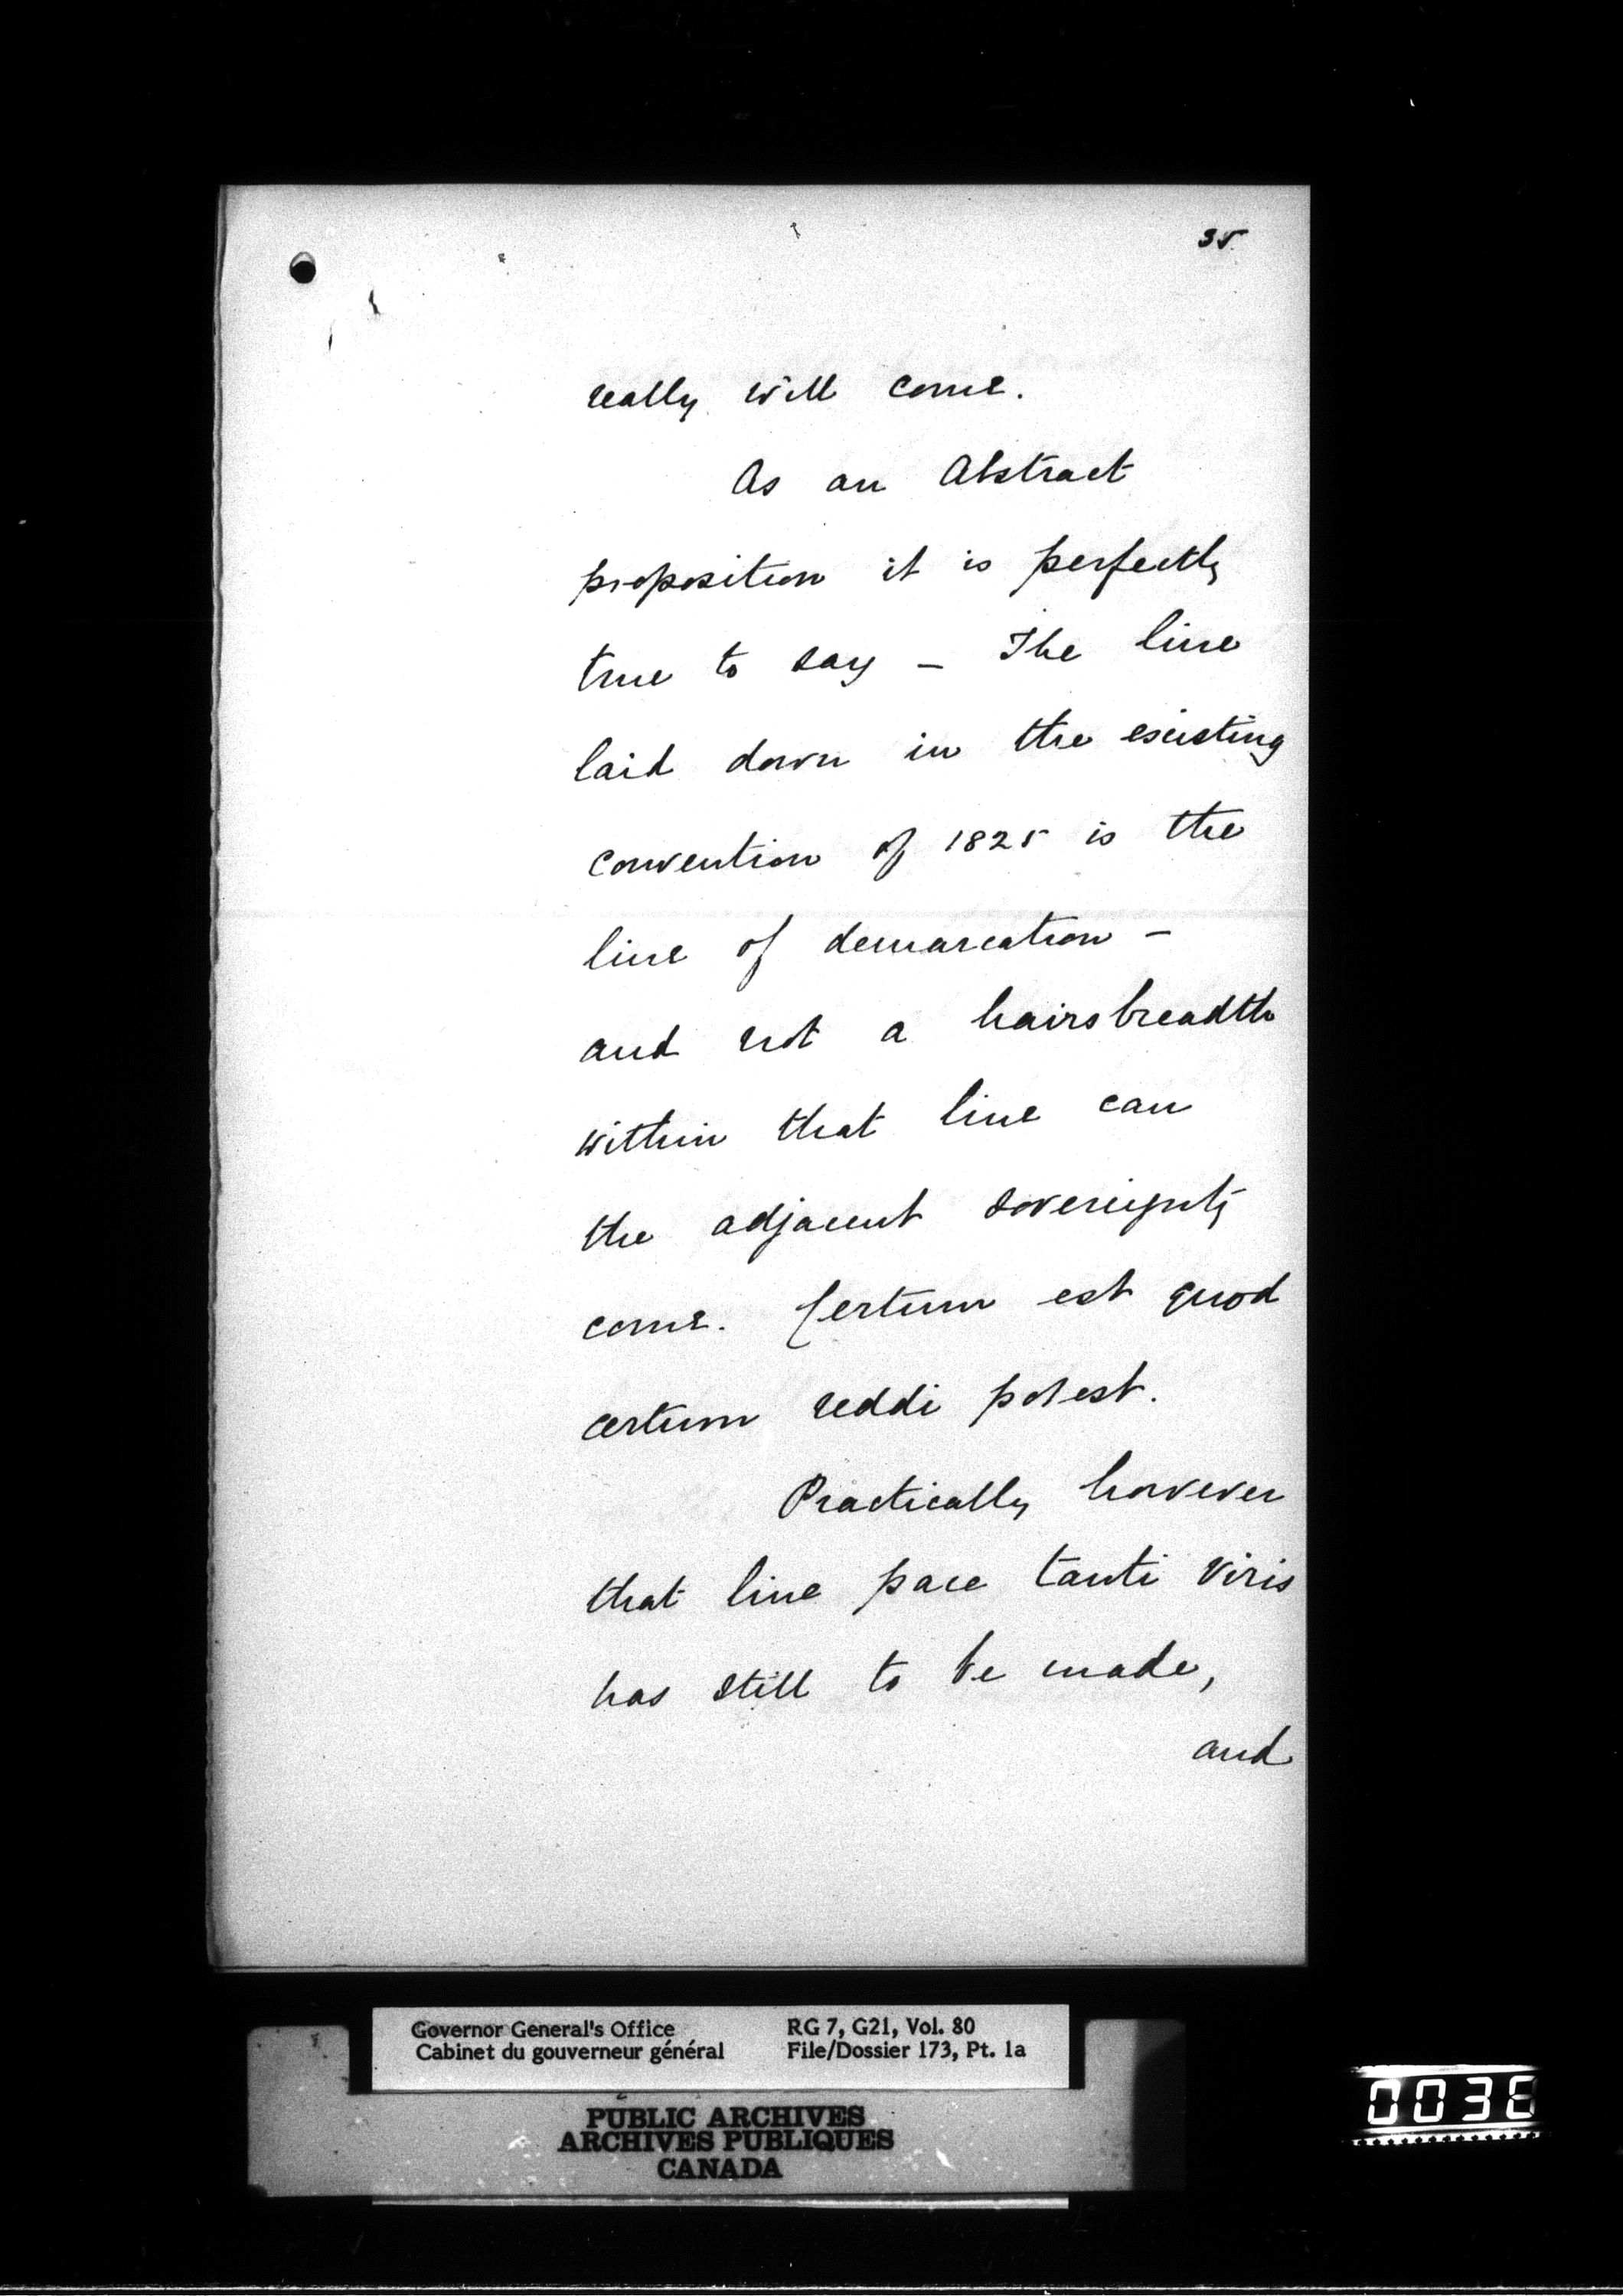 35
really will come.
As an Abstract
proposition it is perfectly
true to say – The line
laid down in the existing
convention of 1825 is the
line of demarcation –
and not a hairsbreadth
within that line can
the adjacent sovereignty
come. Certum est quod
certum reddi potest.
Practically however
that line pace tanti viris
has still to be made,
and
Governor General's Office
Cabinet du gouverneur général
RG 7, G21, Vol. 80
File/Dossier 173, Pt. 1a
PUBLIC ARCHIVES
ARCHIVES PUBLIQUES
CANADA